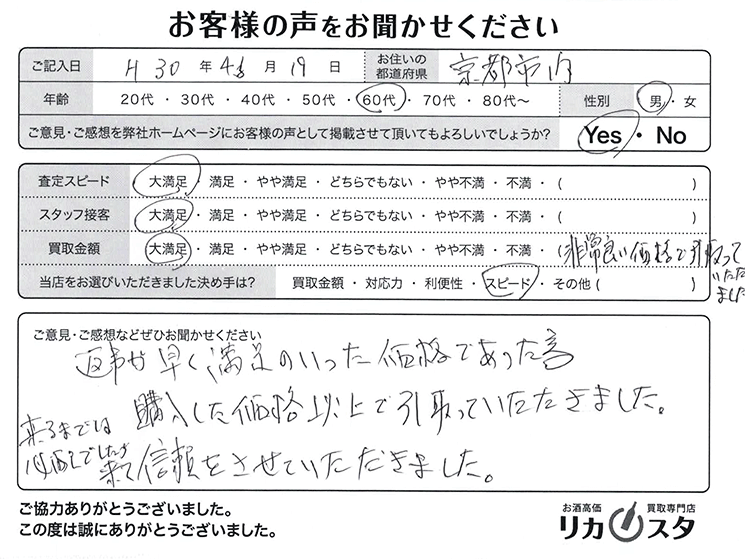 お客様の声をお聞かせください
ご記入日 H 30 年 4 月 19 日 お住いの都道府県 京都市内
年齢 20代 ・ 30代 ・ 40代 ・ 50代 ・ 60代 ・ 70代 ・ 80代〜 性別 男 ・ 女
ご意見・ご感想を弊社ホームページにお客様の声として掲載させて頂いてもよろしいでしょうか? Yes ・ No
査定スピード 大満足 ・ 満足 ・ やや満足 ・ どちらでもない ・ やや不満 ・ 不満 ・ ( )
スタッフ接客 大満足 ・ 満足 ・ やや満足 ・ どちらでもない ・ やや不満 ・ 不満 ・ ( )
買取金額 大満足 ・ 満足 ・ やや満足 ・ どちらでもない ・ やや不満 ・ 不満 ・ (非常良い価格で引取って
いただ
ました
当店をお選びいただきました決め手は? 買取金額 ・ 対応力 ・ 利便性 ・ スピード ・ その他 ( )
ご意見・ご感想などぜひお聞かせください
返事が早く満足のいった価格であった
購入した価格以上で引取っていただきました。
来るまでは
でしたが
来て信頼をさせていただきました。
ご協力ありがとうございました。
この度は誠にありがとうございました。
お酒高価 買取専門店
リカスタ